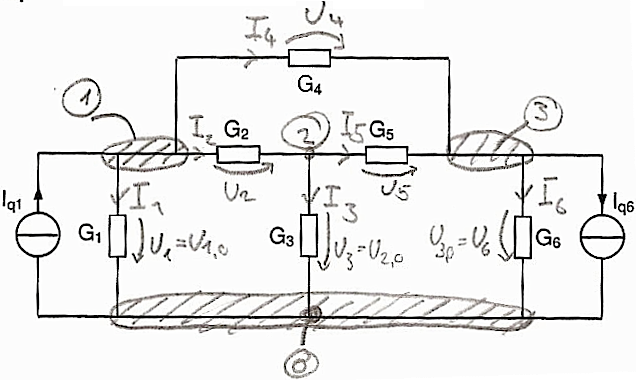 U4
I4
G4
1
I2
G2
2
I5
G5
3
U2
U5
Iq1
I1
G1
U1=U1,0
I3
G3
U3=U2,0
U3,0=U6
I6
G6
Iq6
0